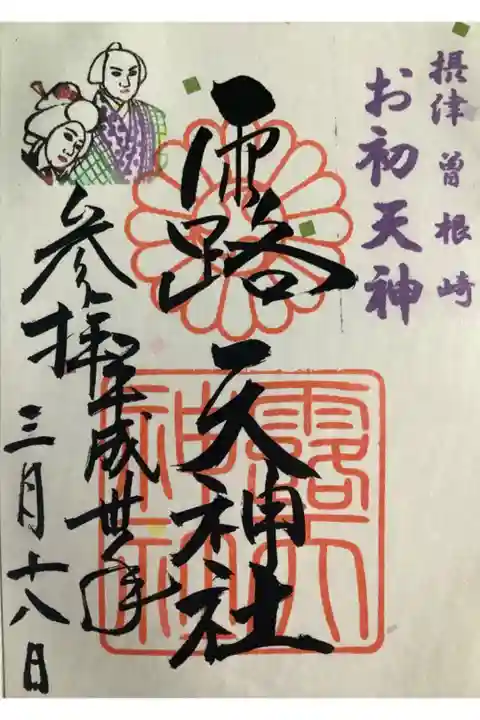 摂津曽根崎
お初天神
露天神社
参拝平成丗年
三月十八日
露天
神社